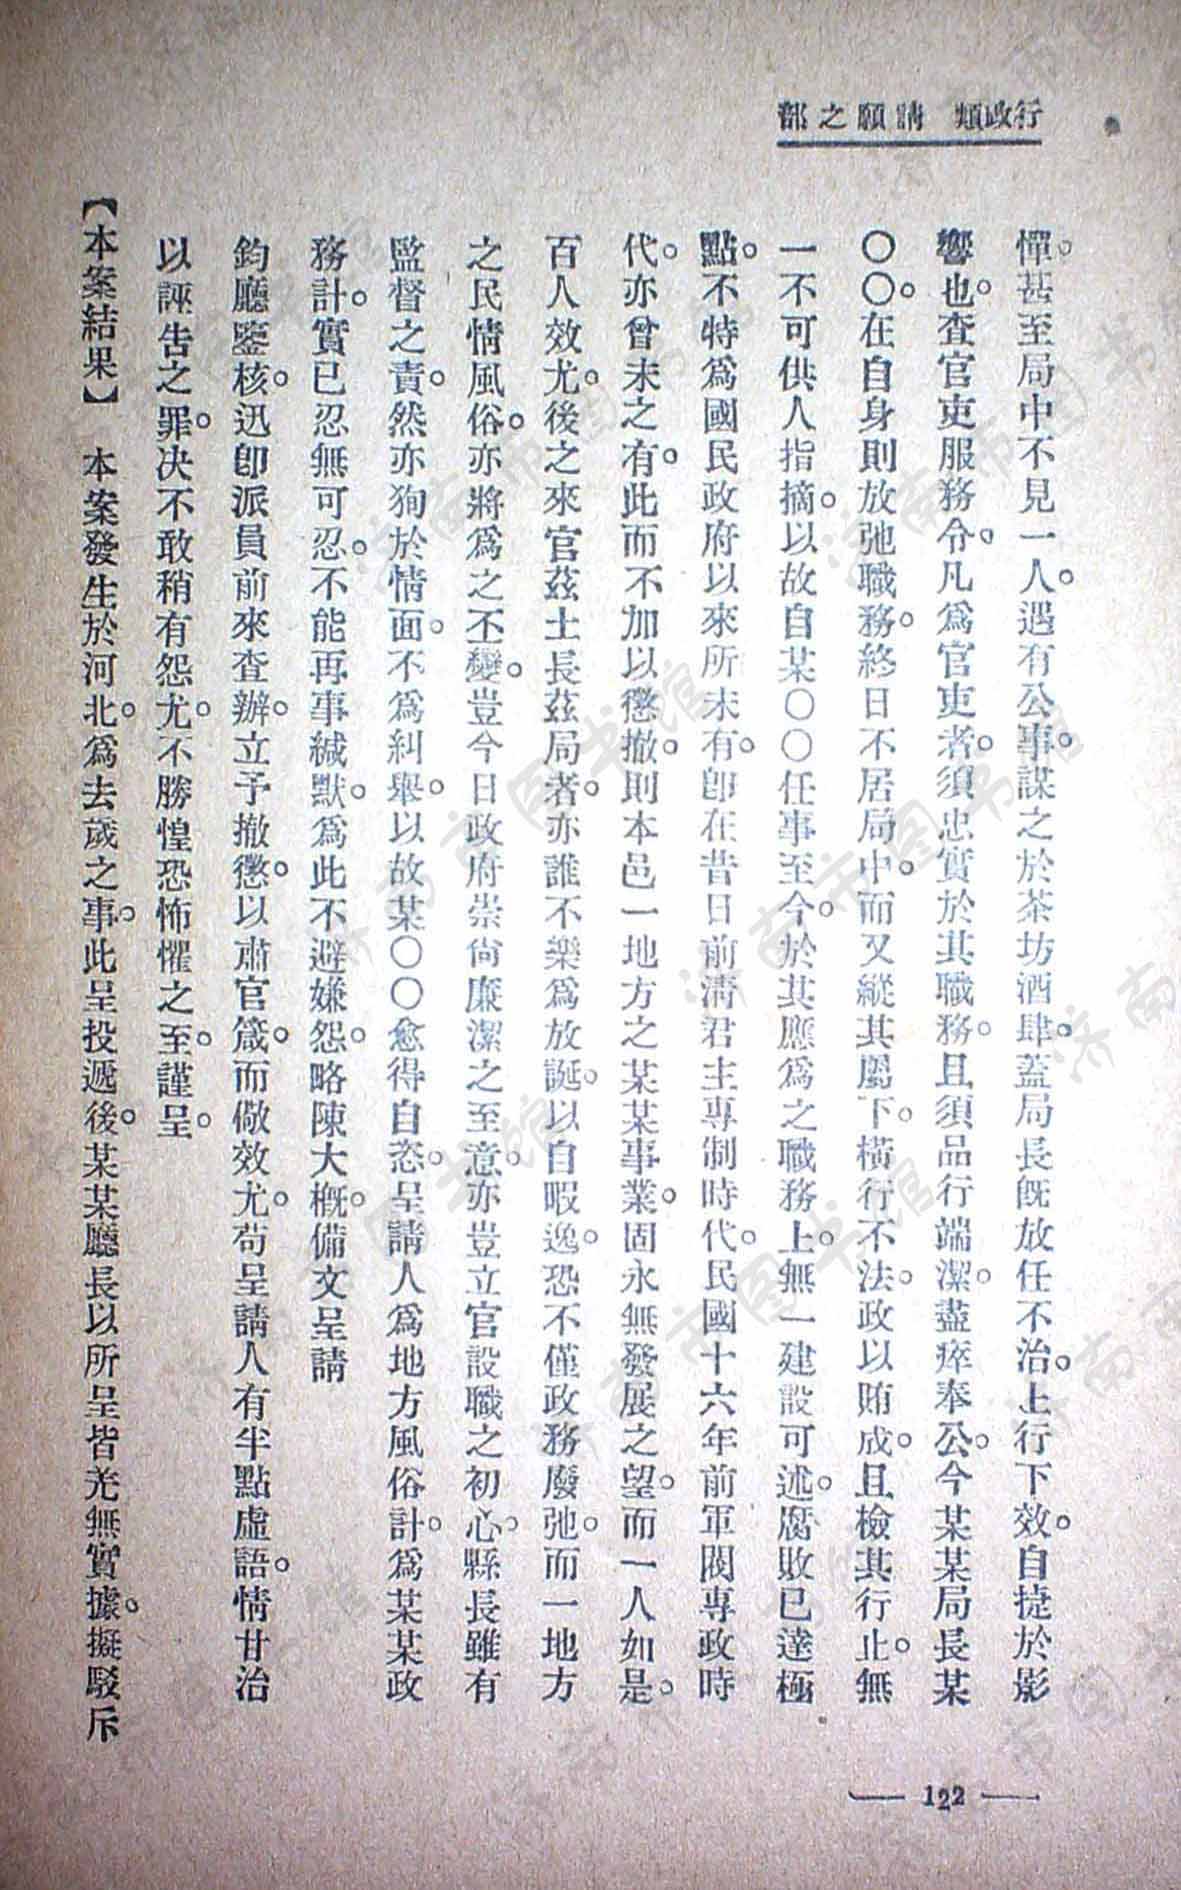 行政類 請願之部
憚。甚至局中不見一人。遇有公事。謀之於茶坊酒肆。蓋局長既放任不治。上行下效。自捷於影
響也。查官吏服務令。凡為官吏者。須忠實於其職務。且須品行端潔。盡瘁奉公。今某某局長某
〇〇。在自身則放弛職務。終日不居局中。而又縱其屬下。橫行不法。政以賄成。且檢其行止。無
一不可供人指摘。以故自某〇〇任事至今。於其應為之職務上。無一建設可述。腐敗已達極
點。不特為國民政府以來所未有。即在昔日前清君主專制時代。民國十六年前軍閥專政時
代。亦曾未之有。此而不加以懲撤。則本邑一地方之某某事業。固永無發展之望。而一人如是。
百人效尤。後之來官茲土長茲局者。亦誰不樂為放誕。以自暇逸。恐不僅政務廢弛。而一地方
之民情風俗。亦將為之丕變。豈今日政府崇尚廉潔之至意。亦豈立官設職之初心。縣長雖有
監督之責。然亦狥於情面。不為糾舉。以故某〇〇愈得自恣。呈請人為地方風俗計。為某某政
務計。實已忍無可忍。不能再事緘默。為此不避嫌怨。略陳大概。備文呈請
鈞廳鑒核。迅即派員前來查辦。立予撤懲。以肅官箴。而儆效尤。苟呈請人有半點虛語。情甘治
以誣告之罪。決不敢稍有怨尤。不勝惶恐怖懼之至。謹呈。
【本案結果】 本案發生於河北。為去歲之事。此呈投遞後。某某廳長以所呈皆羌無實據。擬駁斥
— 122 —
济南市图书馆
济南市图书馆
济南市图书馆
济南市图书馆